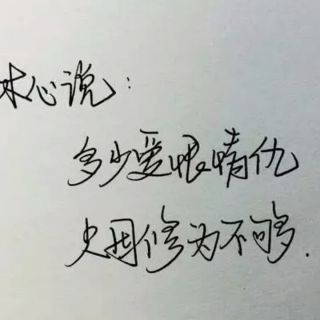 木心说:
多少爱恨情仇
只因修为不够.